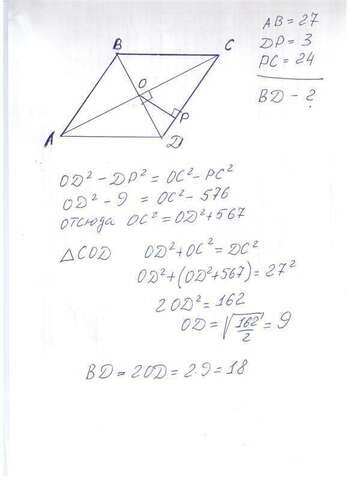 AB = 27
DP = 3
PC = 24
BD - ?
B
C
O
P
A
D
OD² - DP² = OC² - PC²
OD² - 9 = OC² - 576
отсюда OC² = OD² + 567
△COD OD² + OC² = DC²
OD² + (OD² + 567) = 27²
2OD² = 162
OD = √162/2 = 9
BD = 2OD = 2·9 = 18